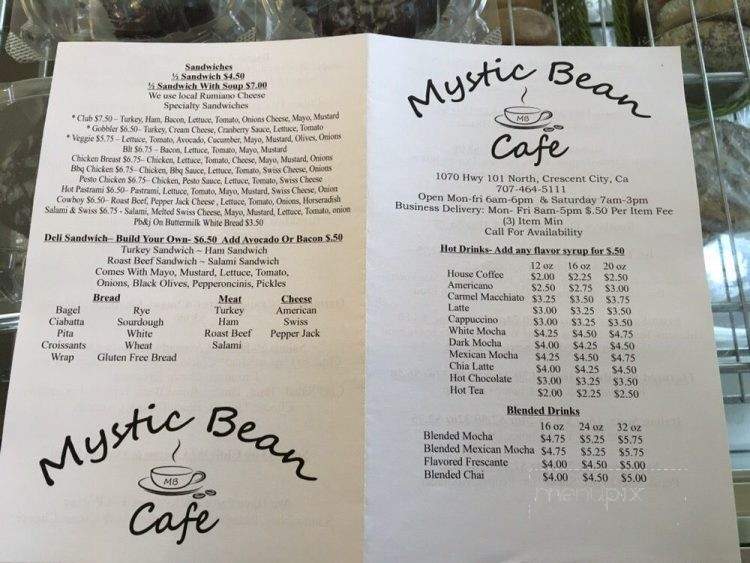 Sandwiches
½ Sandwich $4.50
½ Sandwich With Soup $7.00
We use local Rumiano Cheese
Specialty Sandwiches
* Club $7.50 – Turkey, Ham, Bacon, Lettuce, Tomato, Onions Cheese, Mayo, Mustard
* Gobbler $6.50– Turkey, Cream Cheese, Cranberry Sauce, Lettuce, Tomato
* Veggie $5.75 – Lettuce, Tomato, Avocado, Cucumber, Mayo, Mustard, Olives, Onions
Blt $6.75 – Bacon, Lettuce, Tomato, Mayo, Mustard
Chicken Breast $6.75– Chicken, Lettuce, Tomato, Cheese, Mayo, Mustard, Onions
Bbq Chicken $6.75– Chicken, Bbq Sauce, Lettuce, Tomato, Swiss Cheese, Onions
Pesto Chicken $6.75– Chicken, Pesto Sauce, Lettuce, Tomato, Swiss Cheese
Hot Pastrami $6.50– Pastrami, Lettuce, Tomato, Mayo, Mustard, Swiss Cheese, Onion
Cowboy $6.50– Roast Beef, Pepper Jack Cheese , Lettuce, Tomato, Onions, Horseradish
Salami & Swiss $6.75 - Salami, Melted Swiss Cheese, Mayo, Mustard, Lettuce, Tomato, onion
Pb&j On Buttermilk White Bread $3.50
Deli Sandwich– Build Your Own- $6.50 Add Avocado Or Bacon $.50
Turkey Sandwich ~ Ham Sandwich
Roast Beef Sandwich ~ Salami Sandwich
Comes With Mayo, Mustard, Lettuce, Tomato,
Onions, Black Olives, Pepperoncinis, Pickles
Bread Meat Cheese
Bagel Rye Turkey American
Ciabatta Sourdough Ham Swiss
Pita White Roast Beef Pepper Jack
Croissants Wheat Salami
Wrap Gluten Free Bread
Mystic Bean
MB
Cafe
Mystic Bean
MB
Cafe
1070 Hwy 101 North, Crescent City, Ca
707-464-5111
Open Mon-fri 6am-6pm & Saturday 7am-3pm
Business Delivery: Mon- Fri 8am-5pm $.50 Per Item Fee
(3) Item Min
Call For Availability
Hot Drinks- Add any flavor syrup for $.50
12 oz 16 oz 20 oz
House Coffee $2.00 $2.25 $2.50
Americano $2.50 $2.75 $3.00
Carmel Macchiato $3.25 $3.50 $3.75
Latte $3.00 $3.25 $3.50
Cappuccino $3.00 $3.25 $3.50
White Mocha $4.25 $4.50 $4.75
Dark Mocha $4.00 $4.25 $4.50
Mexican Mocha $4.25 $4.50 $4.75
Chia Latte $4.00 $4.25 $4.50
Hot Chocolate $3.00 $3.25 $3.50
Hot Tea $2.00 $2.25 $2.50
Blended Drinks
16 oz 24 oz 32 oz
Blended Mocha $4.75 $5.25 $5.75
Blended Mexican Mocha $4.75 $5.25 $5.75
Flavored Frescante $4.00 $4.50 $5.00
Blended Chai $4.00 $4.50 $5.00
menupix